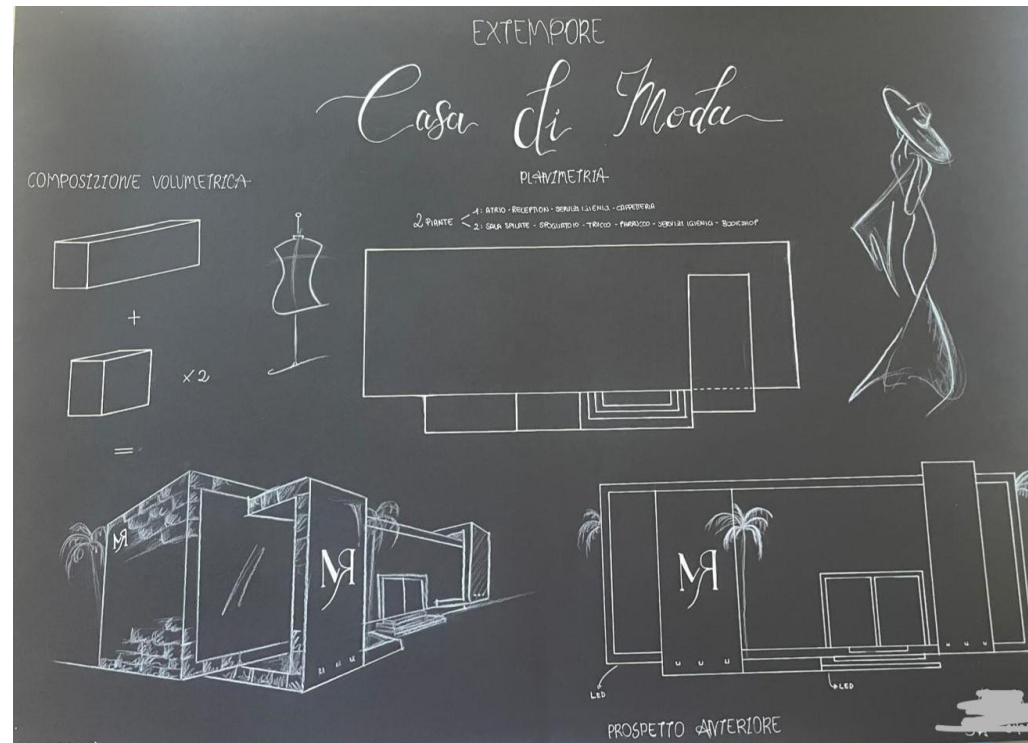 EXTEMPORE
Casa di Moda
COMPOSIZIONE VOLUMETRICA
PLANIMETRIA
2 PIANTE
1: ATRIO - RECEPTION - SERVIZI IGIENICI - CAFFETTERIA
2: SALA SFILATE - SPOGLIATOIO - TRUCCO - PARRUCCO - SERVIZI IGIENICI - BOOKSHOP
+
x2
=
LED
LED
PROSPETTO ANTERIORE